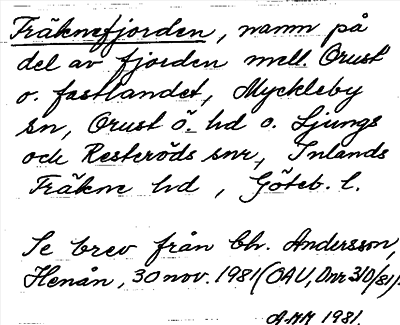 Fräknefjorden, namn på
del av fjorden mell. Orust
o. fastlandet, Myckleby
sn, Orust ö. hd o. Ljungs
och Resteröds snr, Inlands
Fräkne hd, Göteb. l.
Se brev från Ch. Andersson,
Henån, 30 nov. 1981 (OAU, Dnr 310/81).
AMM 1981.